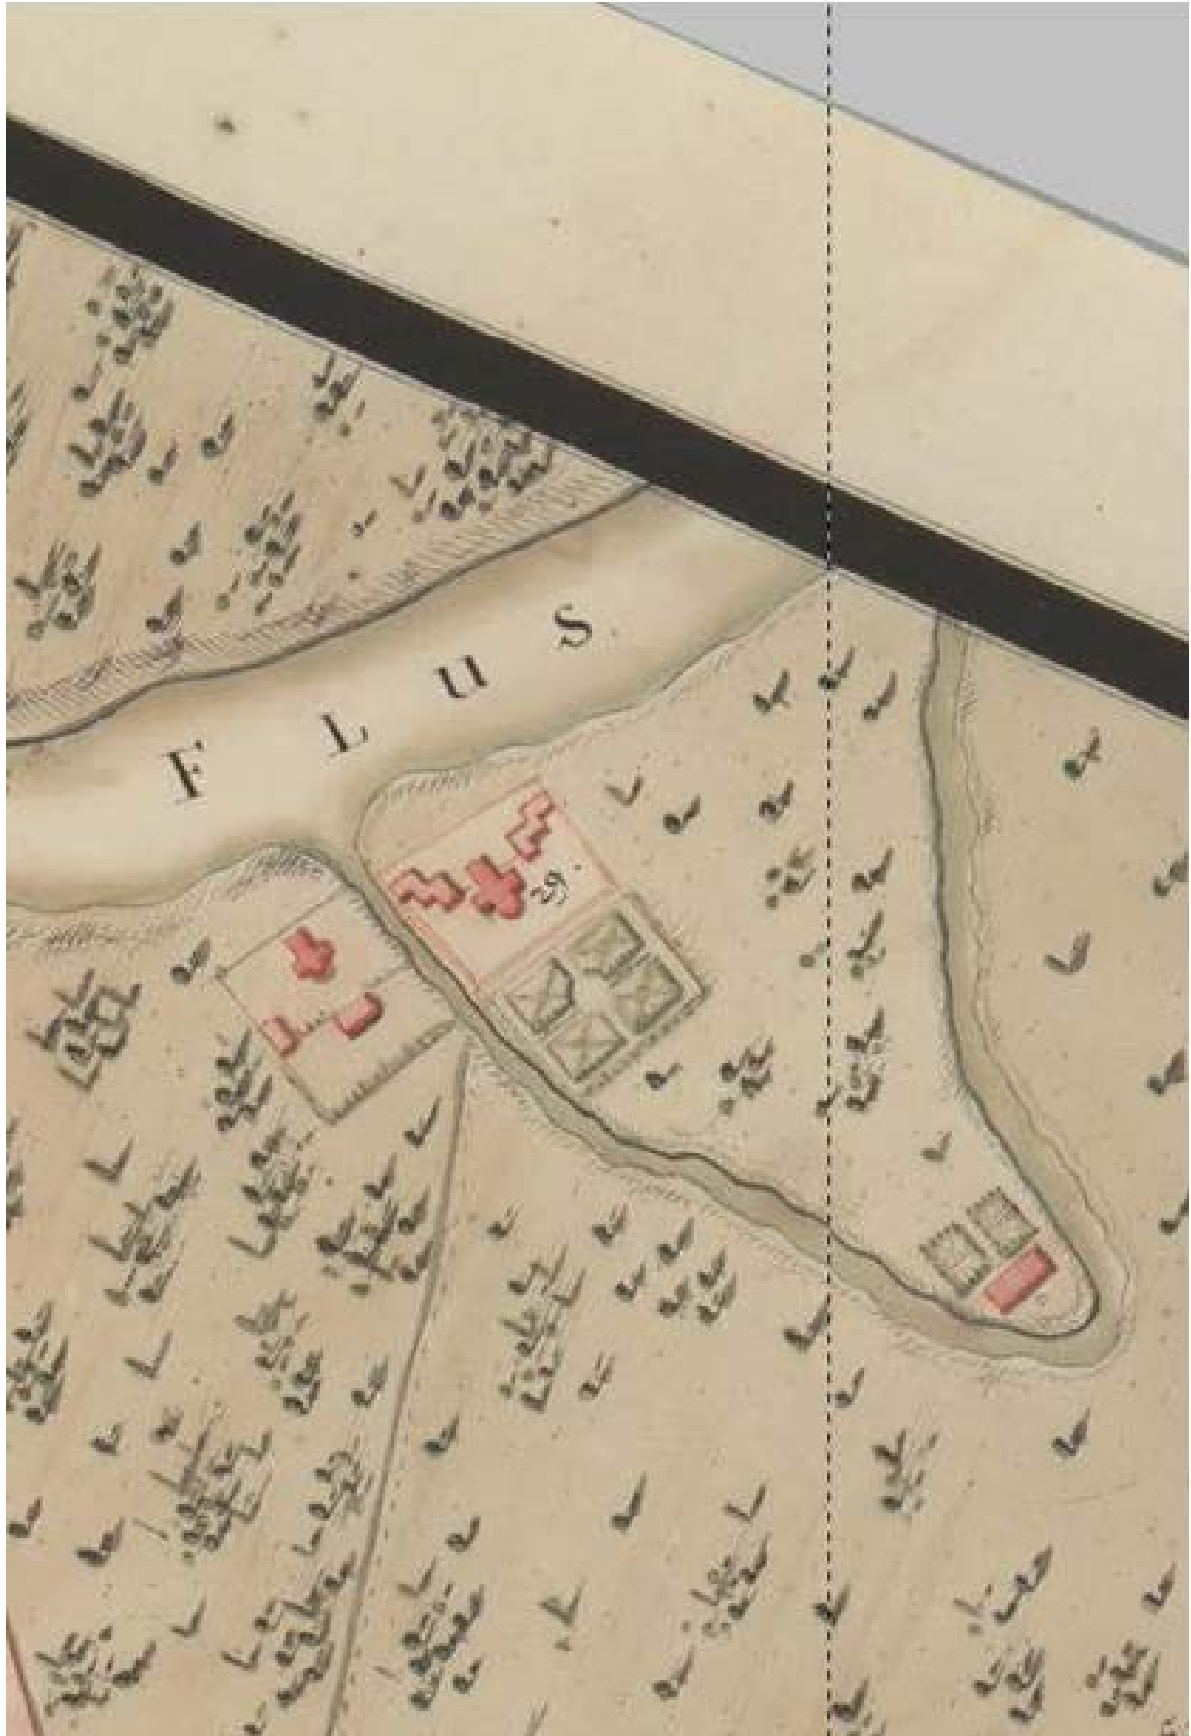 F L U S
29.